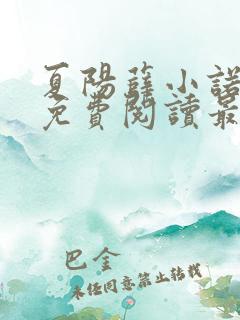 夏陽薛小諾
免費閱讀最
巴金
未经同意禁止转载